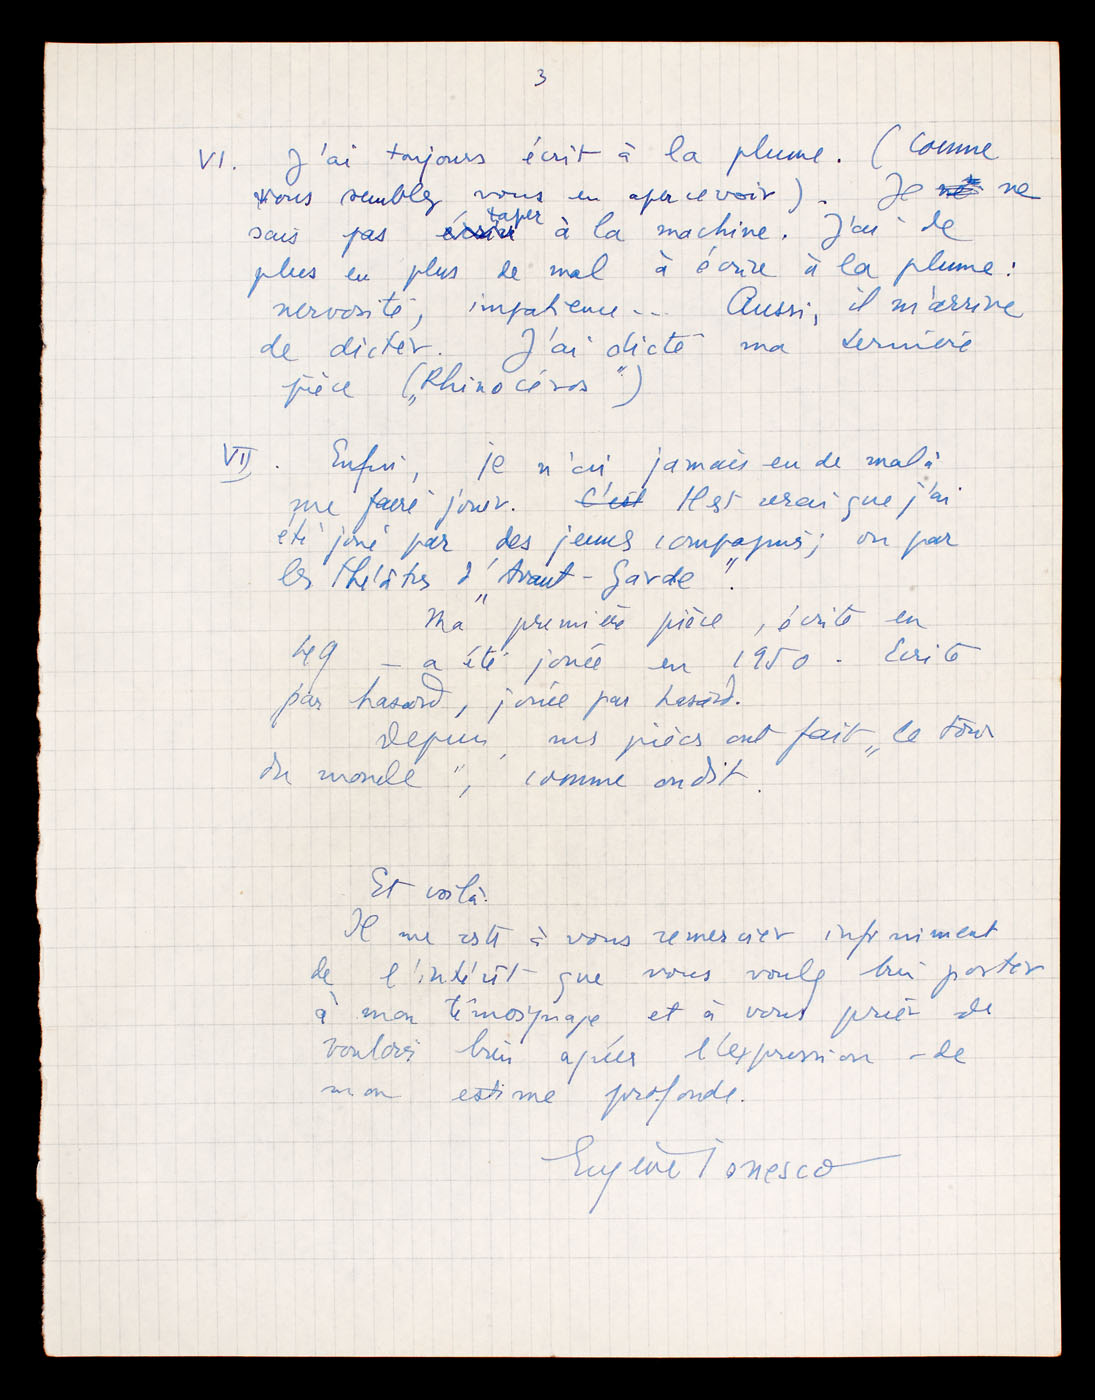 3
VI. J'ai toujours écrit à la plume. (Comme
vous semblez vous en apercevoir). Je ne
sais pas taper à la machine. J'ai de
plus en plus de mal à écrire à la plume:
nervosité, impatience... Aussi, il m'arrive
de dicter. J'ai dicté ma dernière
pièce („Rhinocéros")
VII. Enfin, je n'ai jamais eu de mal à
me faire jouer. C'est Il est vrai que j'ai
été joué par des jeunes compagnies; ou par
les théâtres d'„Avant-Garde".
Ma première pièce, écrite en
49 – a été jouée en 1950. Ecrite
par hasard, jouée par hasard.
Depuis, mes pièces ont fait „le tour
du monde", comme on dit.
Et voilà.
Il me reste à vous remercier infiniment
de l'intérêt que vous voulez bien porter
à mon témoignage et à vous prier de
vouloir bien agréer l'expression de
mon estime profonde.
Eugène Ionesco